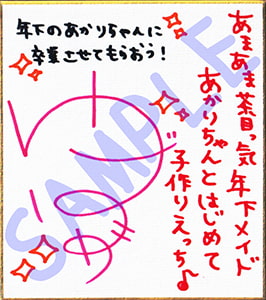 あまあま茶目っ気 年下メイド
あかりちゃんとはじめて
子作りえっち♪
年下のあかりちゃんに
卒業させてもらおう!
SAMPLE